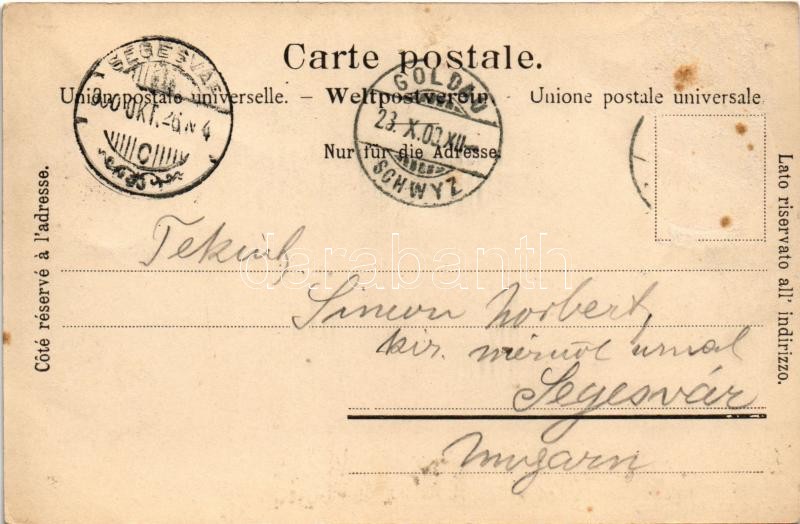 Carte postale.
Union postale universelle. – Weltpostverein – Unione postale universale
Nur für die Adresse.
SEGESVÁR
900 OKT. 26 N 4
C
GOLDAU
23. X. 00. XII
SCHWYZ
Côté réservé à l'adresse.
Lato riservato all' indirizzo.
Tekint.
Simon Norbert,
kir. mérnök urnak
Segesvár
Ungarn
darabanth